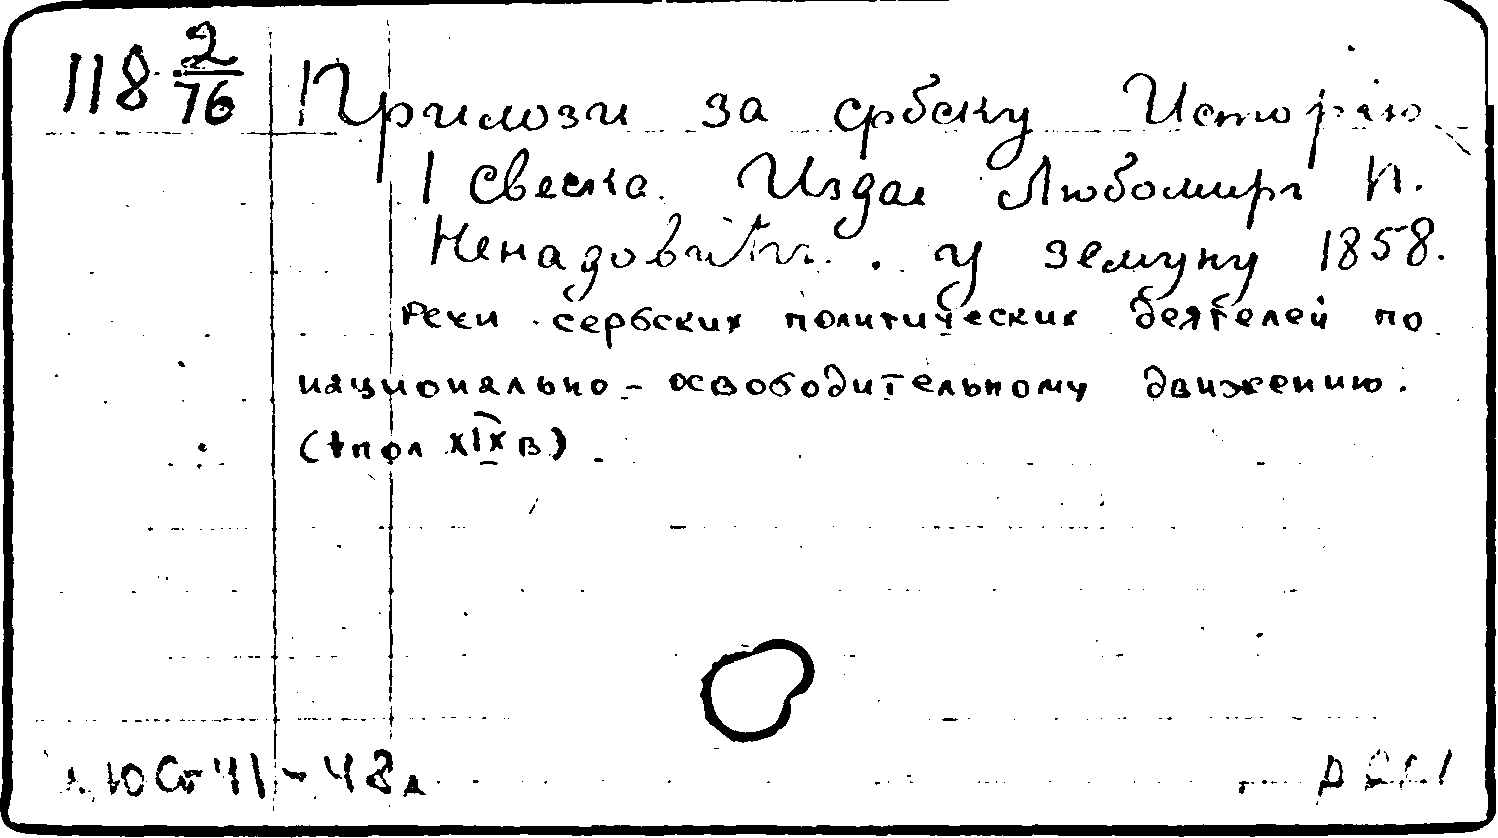 118 2/76 Прилози за србску Исторiю
I свеска. Издае Любомиръ П.
Ненадовићъ. у земуну 1858.
Речи сербских политических деятелей по
национально-освободительному движению.
(1 пол XIX в)